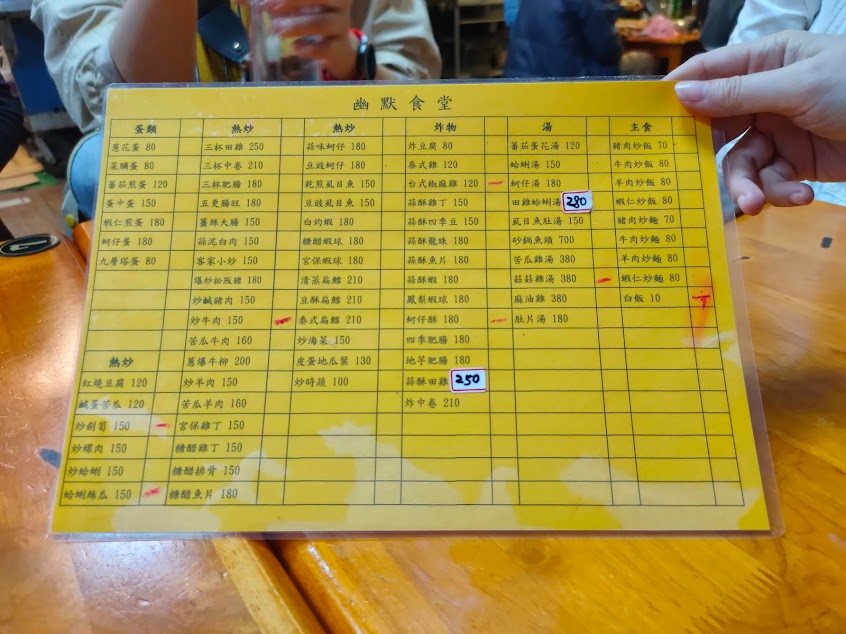 幽默食堂
蛋類
蔥花蛋 80
菜脯蛋 80
蕃茄煎蛋 120
蛋中蛋 150
蝦仁煎蛋 180
蚵仔蛋 180
九層塔蛋 80
熱炒
紅燒豆腐 120
鹹蛋苦瓜 120
炒劍筍 150
炒螺肉 150
炒蛤蜊 150
蛤蜊絲瓜 150
熱炒
三杯田雞 250
三杯中卷 210
三杯肥腸 180
五更腸旺 180
薑絲大腸 150
蒜泥白肉 150
客家小炒 150
爆炒松阪豬 180
炒鹹豬肉 150
炒牛肉 150
苦瓜牛肉 160
蔥爆牛柳 200
炒羊肉 150
苦瓜羊肉 160
宮保雞丁 150
糖醋雞丁 150
糖醋排骨 150
糖醋魚片 180
熱炒
蒜味蚵仔 180
豆豉蚵仔 180
乾煎虱目魚 150
豆豉虱目魚 150
白灼蝦 180
糖醋蝦球 180
宮保蝦球 180
清蒸扁鱈 210
豆酥扁鱈 210
泰式扁鱈 210
炒海菜 150
皮蛋地瓜葉 130
炒時蔬 100
炸物
炸豆腐 80
泰式雞 120
台式椒麻雞 120
蒜酥雞丁 150
蒜酥四季豆 150
蒜酥龍珠 180
蒜酥魚片 180
蒜酥蝦 180
鳳梨蝦球 180
蚵仔酥 180
四季肥腸 180
地子肥腸 180
蒜酥田雞 250
炸中卷 210
湯
蕃茄蛋花湯 120
蛤蜊湯 150
蚵仔湯 180
田雞蛤蜊湯 280
虱目魚肚湯 150
砂鍋魚頭 700
苦瓜雞湯 380
菇菇雞湯 380
麻油雞 380
肚片湯 180
主食
豬肉炒飯 70
牛肉炒飯 80
羊肉炒飯 80
蝦仁炒飯 80
豬肉炒麵 70
牛肉炒麵 80
羊肉炒麵 80
蝦仁炒麵 80
白飯 10